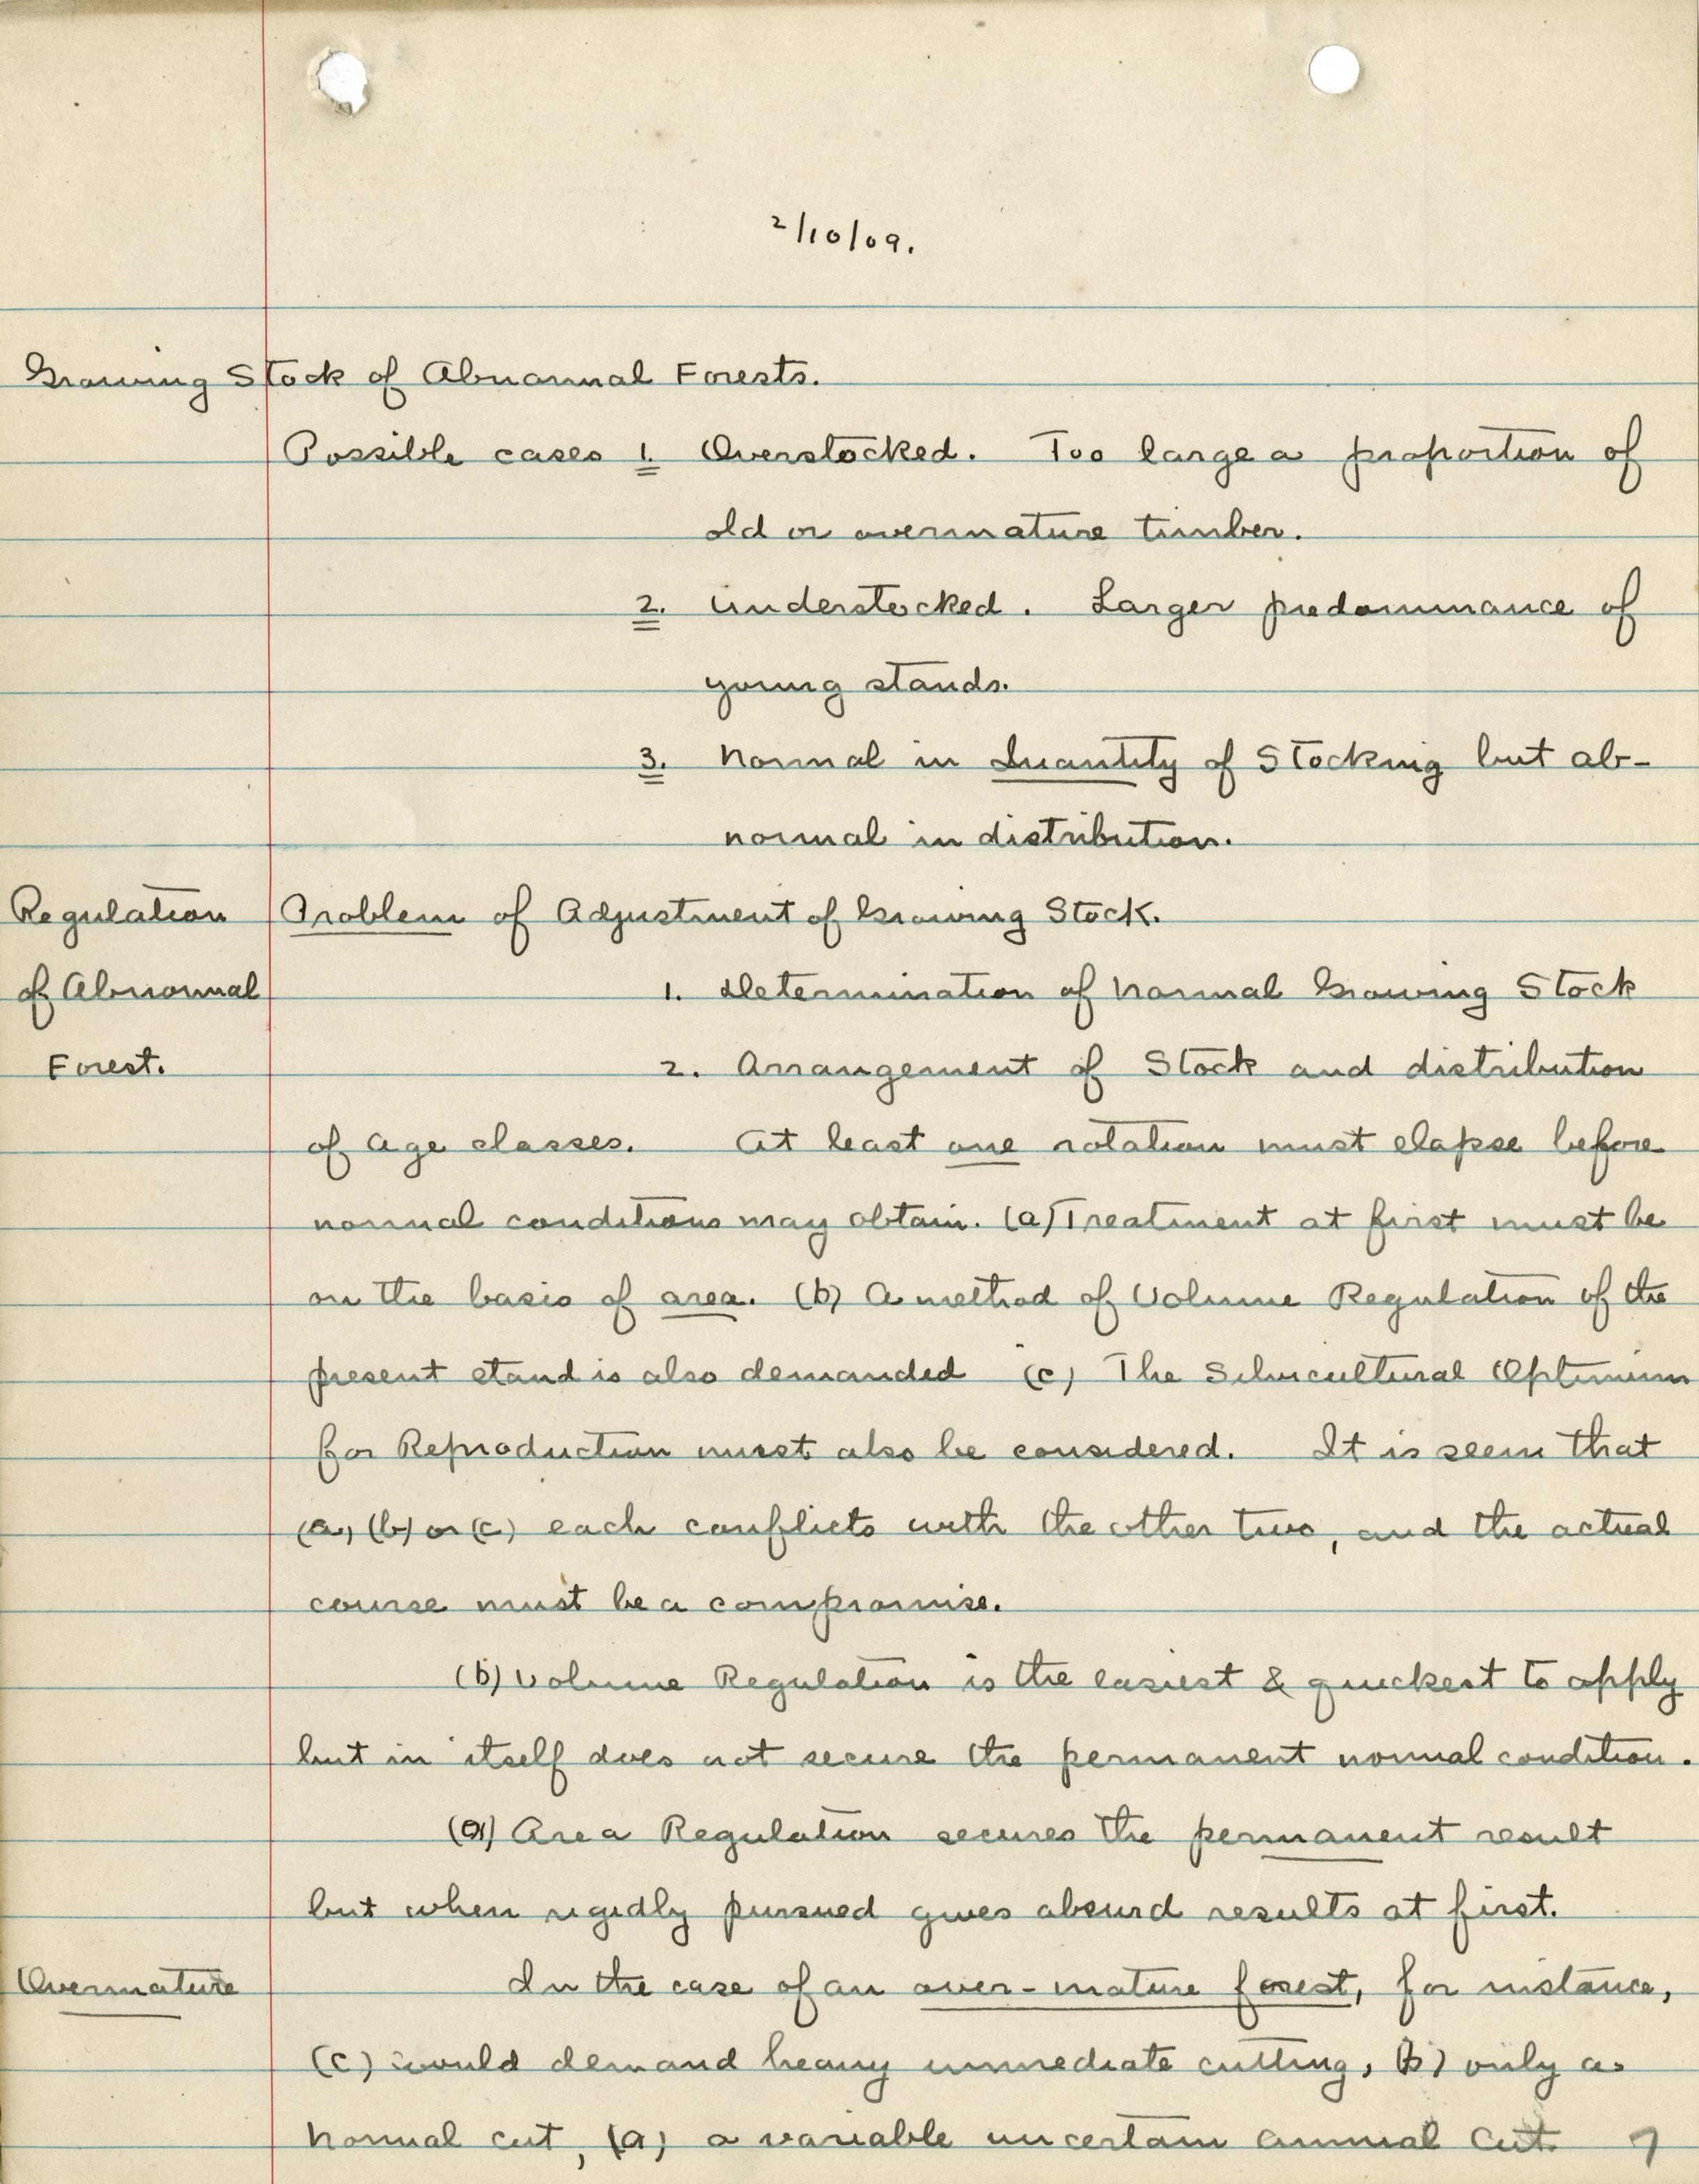 2/10/09.
Growing Stock of Abnormal Forests.
Possible cases 1. Overstocked. Too large a proportion of
old or overmature timber.
2. Understocked. Larger predominance of
young stands.
3. Normal in Quantity of Stocking but ab-
normal in distribution.
Regulation Problem of Adjustment of Growing Stock.
of Abnormal 1. Determination of Normal Growing Stock
Forest. 2. Arrangement of Stock and distribution
of Age classes. At least one rotation must elapse before
normal conditions may obtain. (a) Treatment at first must be
on the basis of area. (b) A method of Volume Regulation of the
present stand is also demanded (c) The Silvicultural Optimum
for Reproduction must also be considered. It is seem that
(a), (b) or (c) each conflicts with the other two, and the actual
course must be a compromise.
(b) Volume Regulation is the easiest & quickest to apply
but in itself does not secure the permanent normal condition.
(a) Area Regulation secures the permanent result
but when rigidly pursued gives absurd results at first.
Overmature In the case of an over-mature forest, for instance,
(c) would demand heavy immediate cutting, (b) only a
normal cut, (a) a variable uncertain annual cut. 7